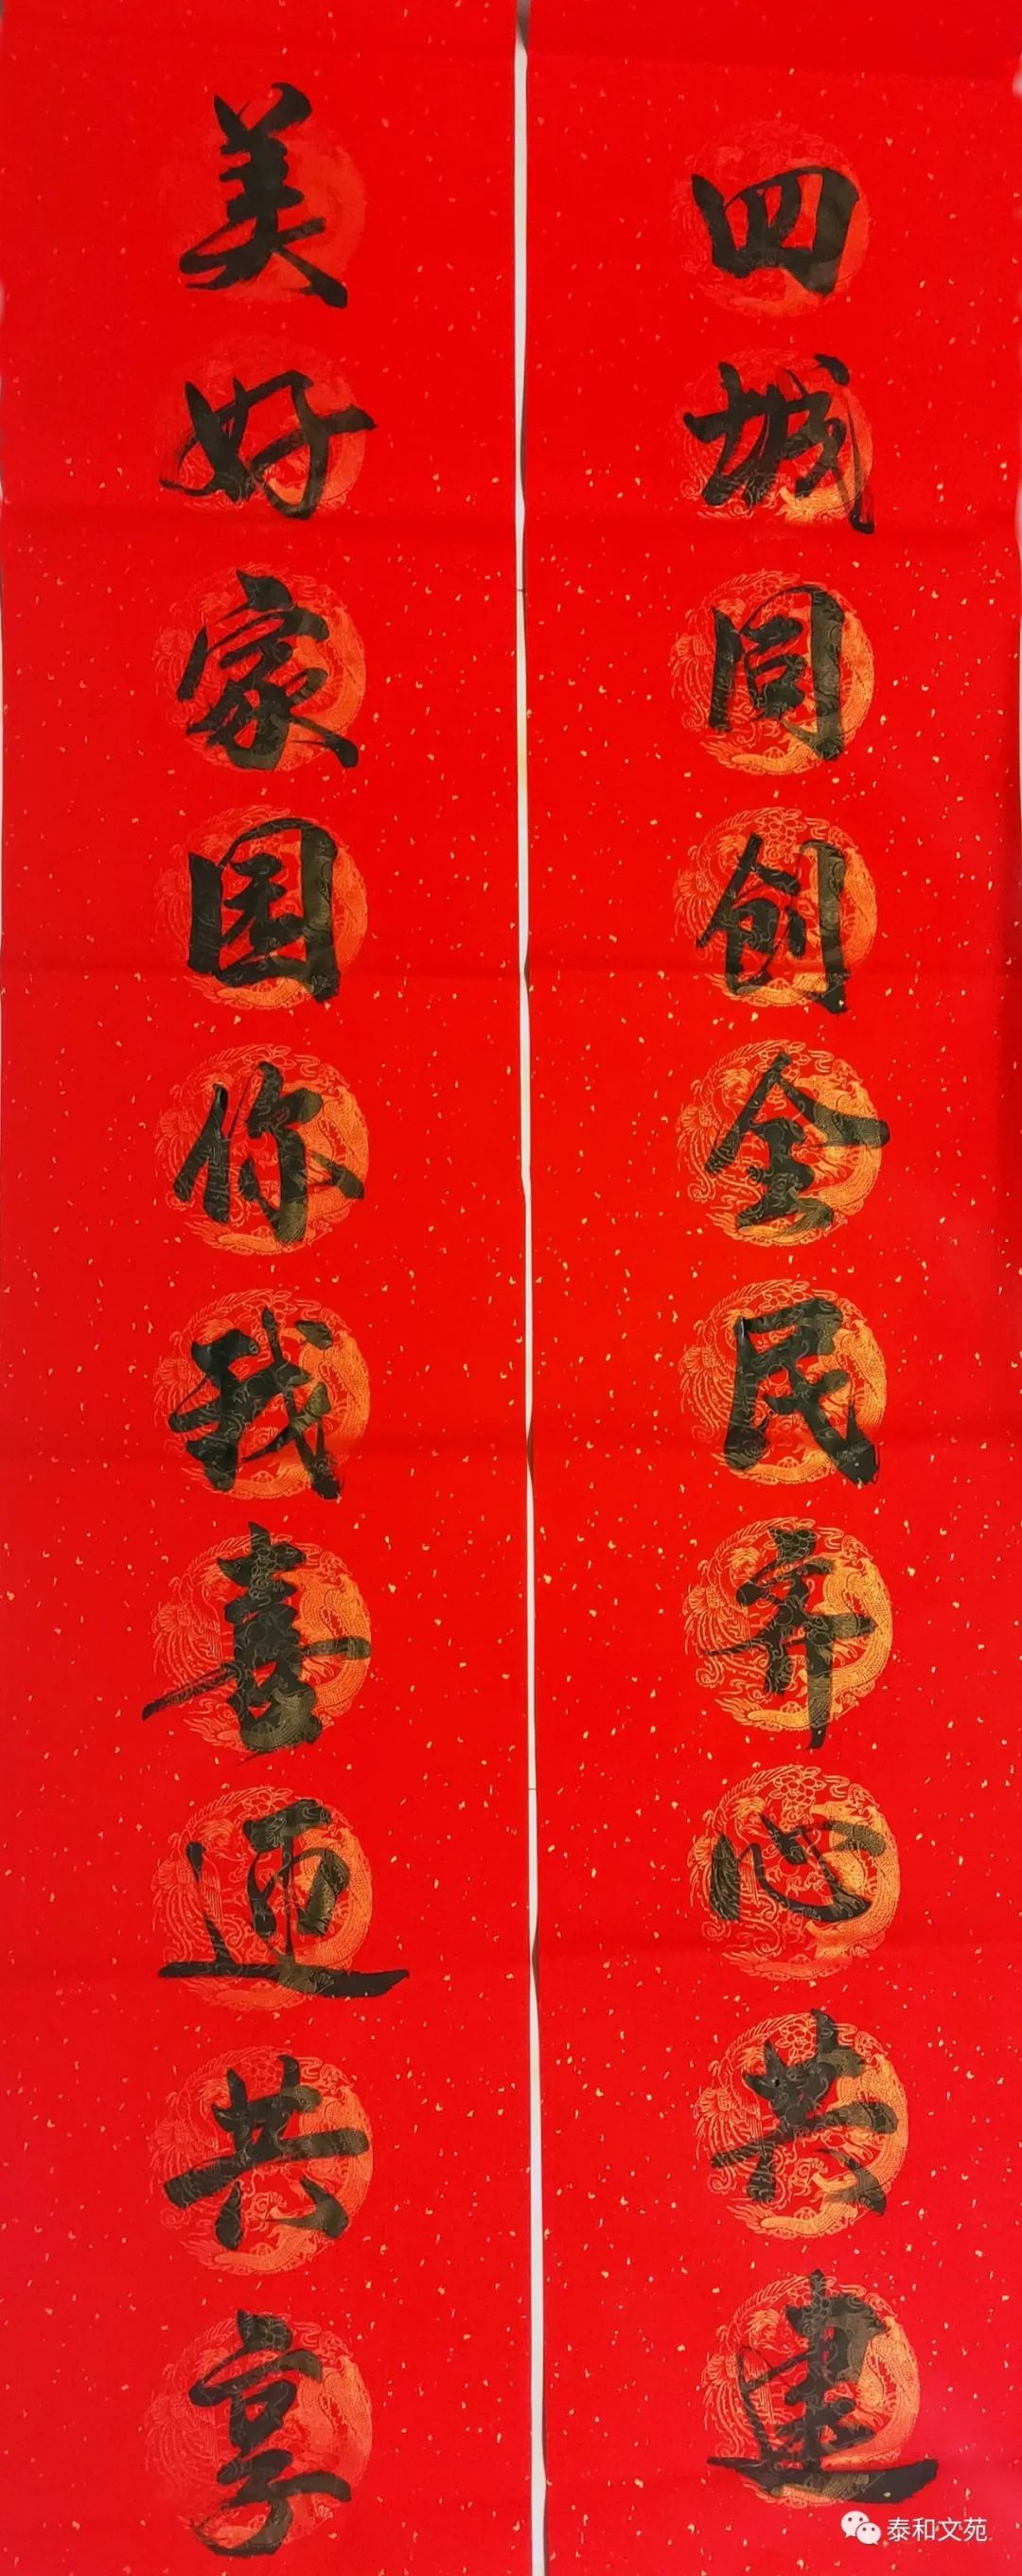 四城同创全民齐心共建
美好家园你我喜迎共享
泰和文苑